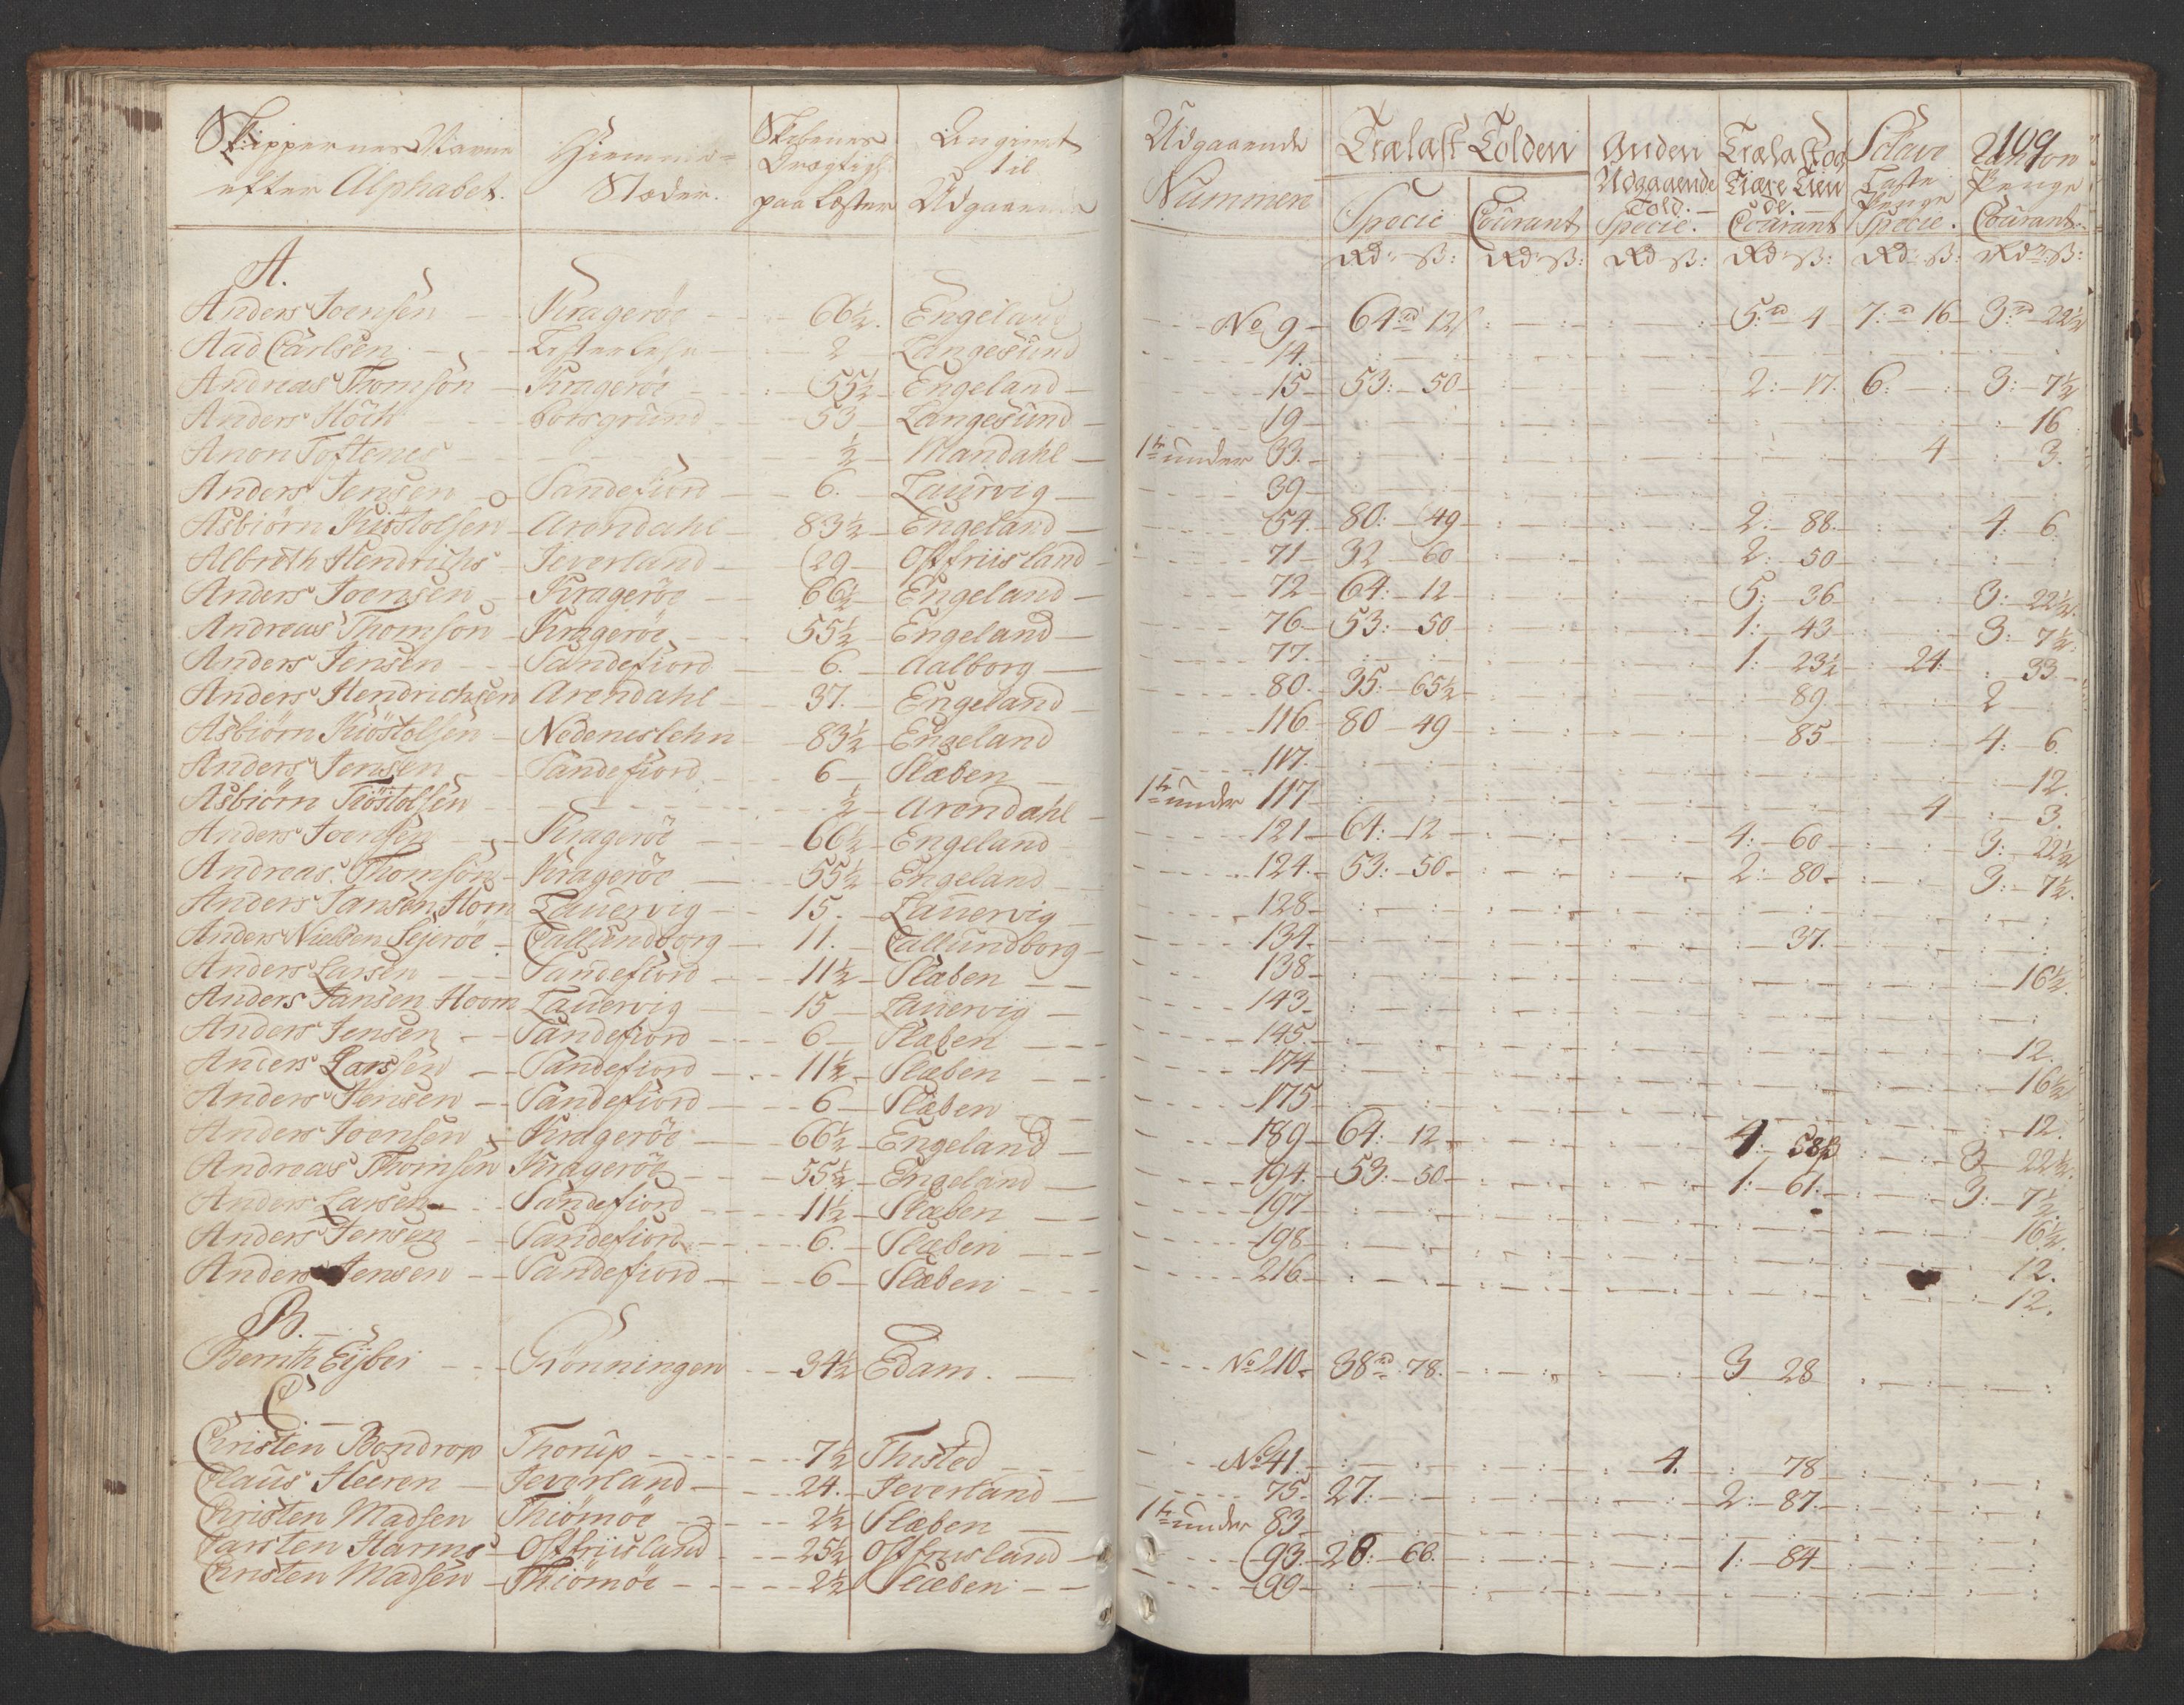 109
Skippernes Navne efter Alphabet. | Hiemme= Stæder. | Skibenes Drægtigh: paa Læster | Angivet til Udgaaende | Udgaaende Nummere | Trælast Tolden Specie | Courant | Anden Udgaaende Told. Specie. | Trælast og Tiære Tien de. Courant | Sclave Caste Penge Specie. | Penge Courant.
Rdr ß: | Rdr ß: | Rd ß: | Rdr ß: | Rd: ß: | Rdr ß:
A.
Anders Joensen | Kragerøe | 66½. | Engeland | No 9 | 64rd 12 | 5rd 4 | 7rd 16 | 3rd 22½
Aad Carlsen | 2 | Langesund | 14.
Andreas Thomsøn | Kragerøe | 55½ | Engeland | 15 | 53: 50 | 2: 17. | 6: | 3: 7½
Anders Höch | Porsgrund | 53 | Langesund | 19 | 16
Anon Toftenes | ½ | Mandahl | 1te under 33. | 4 | 3.
Anders Jensen | Sandefiord | 6. | Laurvig | 39
Asbiørn Kiöstolsen | Arendahl | 83½ | Engeland | 54 | 80: 49 | 2: 88. | 4: 6.
Albreth Hendrichs | Jeverland | 29 | Ostfriisland | 71 | 32 60 | 2: 50
Anders Joensen | Kragerøe | 66½ | Engeland | 72 | 64: 12 | 5: 36 | 3: 22½.
Andreas Thomsøn | Kragerøe | 55½ | Engeland | 76 | 53: 50 | 1: 43 | 3: 7½.
Anders Jensen | Sandefiord | 6. | Aalborg | 77. | 1: 23½ | 24: | 33
Anders Hendrichsen | Arendahl | 37. | Engeland | 80. | 35: 65½ | 89. | 2
Asbiørn Kiöstolsen | Nedeneslehn | 83½ | Engeland | 116 | 80 49 | 85 | 4: 6.
Anders Jensen | Sandefiord | 6 | Slæben | 117. | 12.
Asbiørn Tiöstolsen | ½ | Arendahl | 1te under 117 | 4 | 3.
Anders Joensen | Kragerøe | 66½ | Engeland | 121 | 64: 12 | 4: 60 | 3: 22½
Andreas Thomsøn | Kragerøe | 55½ | Engeland | 124. | 53: 50. | 2: 80. | 3: 7½.
Anders Jansen Horn | Lauervig | 15. | Lauervig | 128
Anders Nielsen Sejerøe | Callundborg | 11. | Callundborg | 134. | 37.
Anders Larsen | Sandefiord | 11½ | Slæben | 138 | 16½.
Anders Jansen Hoorn | Lauervig | 15 | Lauervig | 143
Anders Jensen | Sandefiord | 6 | Slæben | 145. | 12.
Anders Larssen | Sandefiord | 11½ | Slæben | 174 | 16½
Anders Jensen | Sandefiord | 6 | Slæben | 175 | 12.
Anders Joensen | Kragerøe | 66½ | Engeland | 189 | 64: 12 | 4: 58ß | 3 22½.
Andreas Thomsen | Kragerøe | 55½ | Engeland | 194. | 53: 50 | 1: 61. | 3: 7½.
Anders Larsen | Sandefiord | 11½ | Slæben | 197 | 16½.
Anders Jensen | Sandefiord | 6. | Slæben | 198 | 12.
Anders Jensen | Sandefiord | 6 | Slæben | 216 | 12.
B.
Bernth Eijbei | Grönningen | 34½ | Edam. | No 210. | 38rd 78. | 3 28
C.
Christen Bondrop | Thorup | 7½ | Thisted | No 41. | 4. | 78
Claus Heeren | Jeverland | 24. | Jeverland | 75 | 27: | 2: 87.
Christen Madsen | Thiömöe | 2½ | Slæben | 1te under 83
Carsten Harms | Ostfriisland | 25½ | Ostfriisland | 93. | 28: 66. | 1: 84
Christen Madsen | Thiömöe | 2½ | Slæben | 99